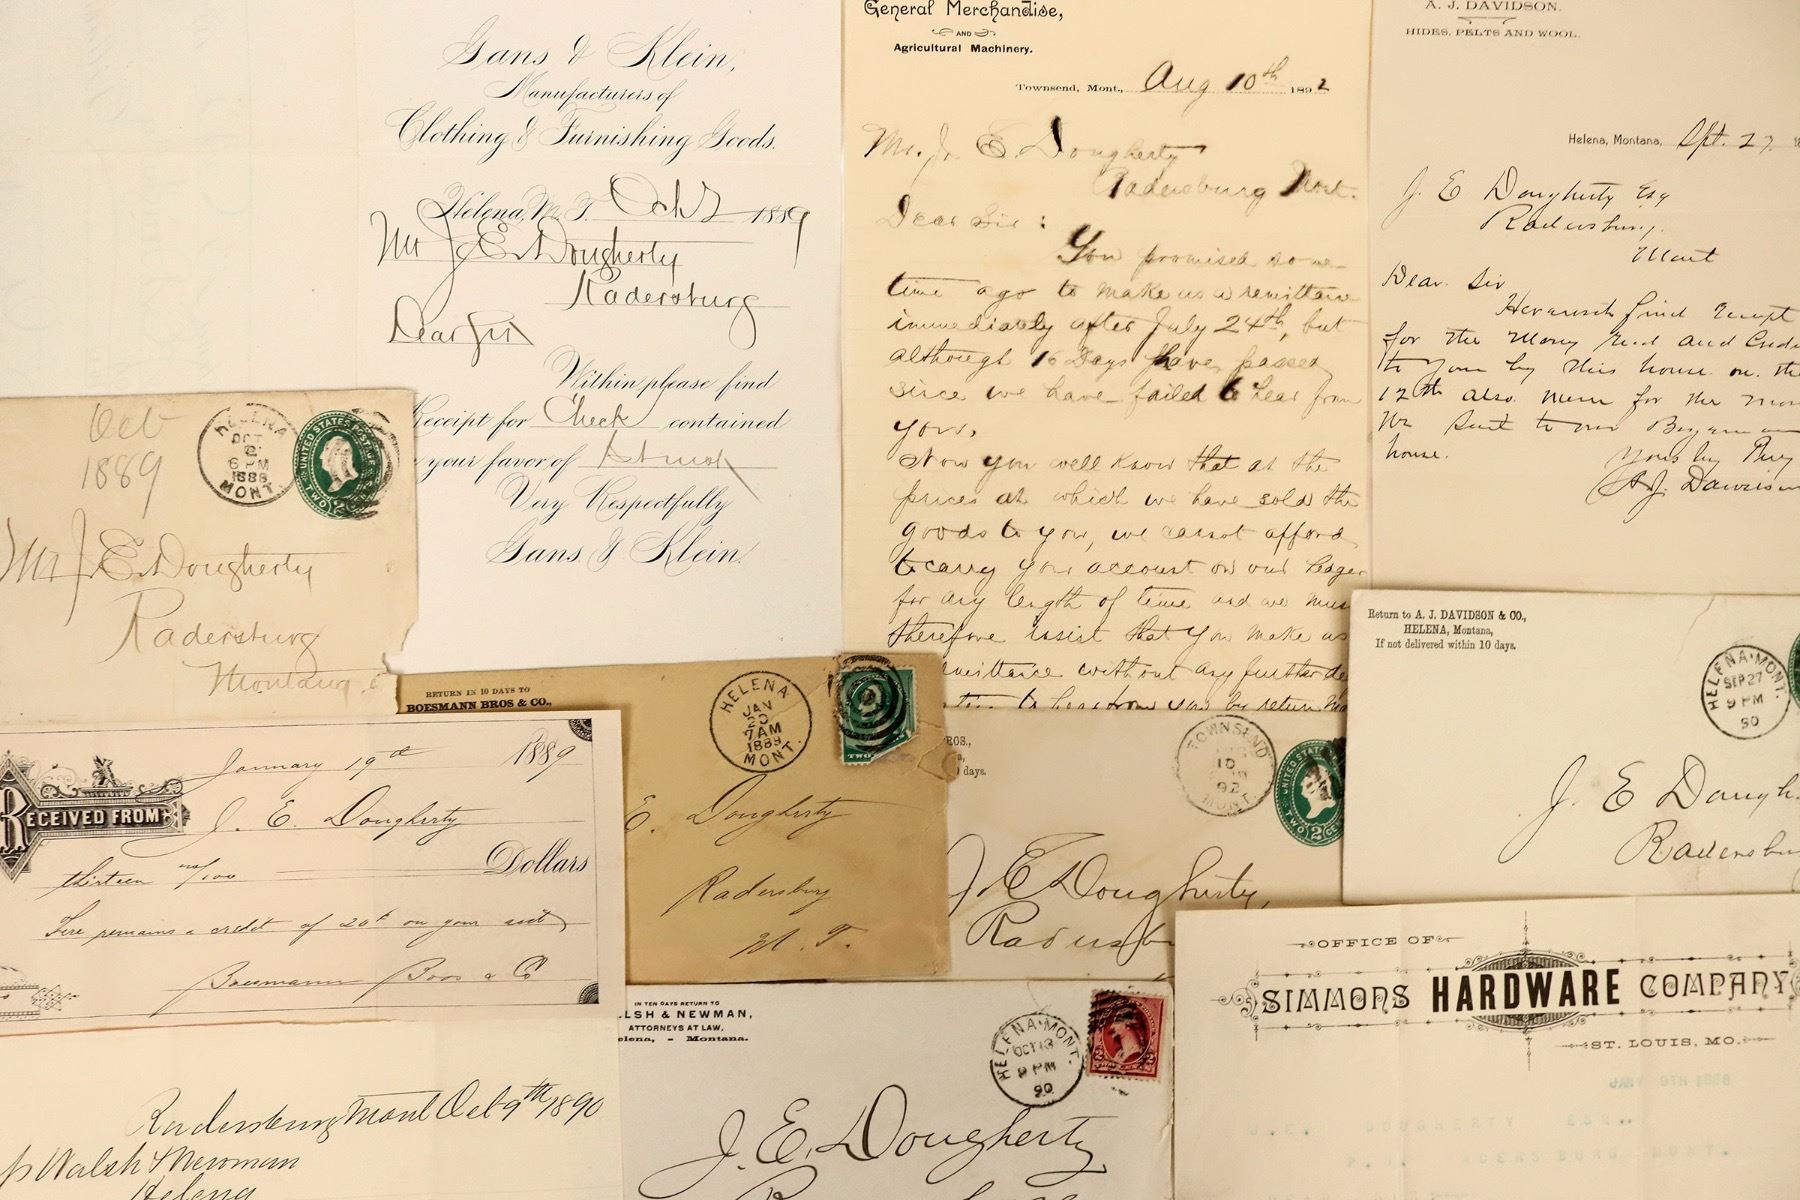 Gans & Klein,
Manufacturers of
Clothing & Furnishing Goods.
Helena, M. T. Oct 2 1889
Mr J. E. Dougherty
Radersburg
Dear Sir
Within please find
Receipt for Check contained
your favor of
Very Respectfully
Gans & Klein.
General Merchandise,
AND
Agricultural Machinery.
Townsend, Mont., Aug 10th 1892
Mr. J. E. Dougherty
Radersburg Mont.
Dear Sir :
You promised some
time ago to make us a remittance
immediately after July 24th, but
although 16 Days have passed
since we have failed to hear from
you,
Now you well know that at the
prices at which we have sold the
goods to you, we cannot afford
to carry your account on our Leger
for any length of time and we must
therefore insist that you make us
remittance without any further de
to hear from you by return
A. J. DAVIDSON.
HIDES, PELTS AND WOOL.
Helena, Montana, Spt. 27.
J. E Dougherty Esq
Radersburg.
Mont
Dear Sir
Herewith find Receipt
for the Money and Credi
to you by this house on the
12th also for the
We Sent to our
house.
Yours
A. J. Davidson
Oct
1889
HELENA
OCT
2
6 PM
1889
MONT.
UNITED STATES POSTAGE
TWO CENTS
Mr J. E. Dougherty
Radersburg
Montana
RETURN IN 10 DAYS TO
BOESMANN BROS & CO.,
HELENA
JAN
20
7AM
1889
MONT.
TWO
E. Dougherty
Radersburg
M. T.
January 19th 1889
RECEIVED FROM
J. E. Dougherty
thirteen no/100 Dollars
remains a credit of on your
Boesmann Bros & Co
ROS.,
days.
TOWNSEND
10
92
MONT.
UNITED STATES
TWO 2 CE
J. E. Dougherty,
Radersb
Return to A. J. DAVIDSON & CO.,
HELENA, Montana,
If not delivered within 10 days.
HELENA. MONT.
SEP 27
9 PM
90
J E Dough
Radersbu
Radersburg Mont Oct 9th 1890
Walsh & Newman
Helena
IN TEN DAYS RETURN TO
LSH & NEWMAN,
ATTORNEYS AT LAW,
elena, - Montana.
HELENA. MONT.
OCT 13
9 PM
90
J. E. Dougherty
OFFICE OF
SIMMONS HARDWARE COMPANY
ST. LOUIS, MO.
JANY 9TH
J. E. DOUGHERTY ESQ.,
MONT.